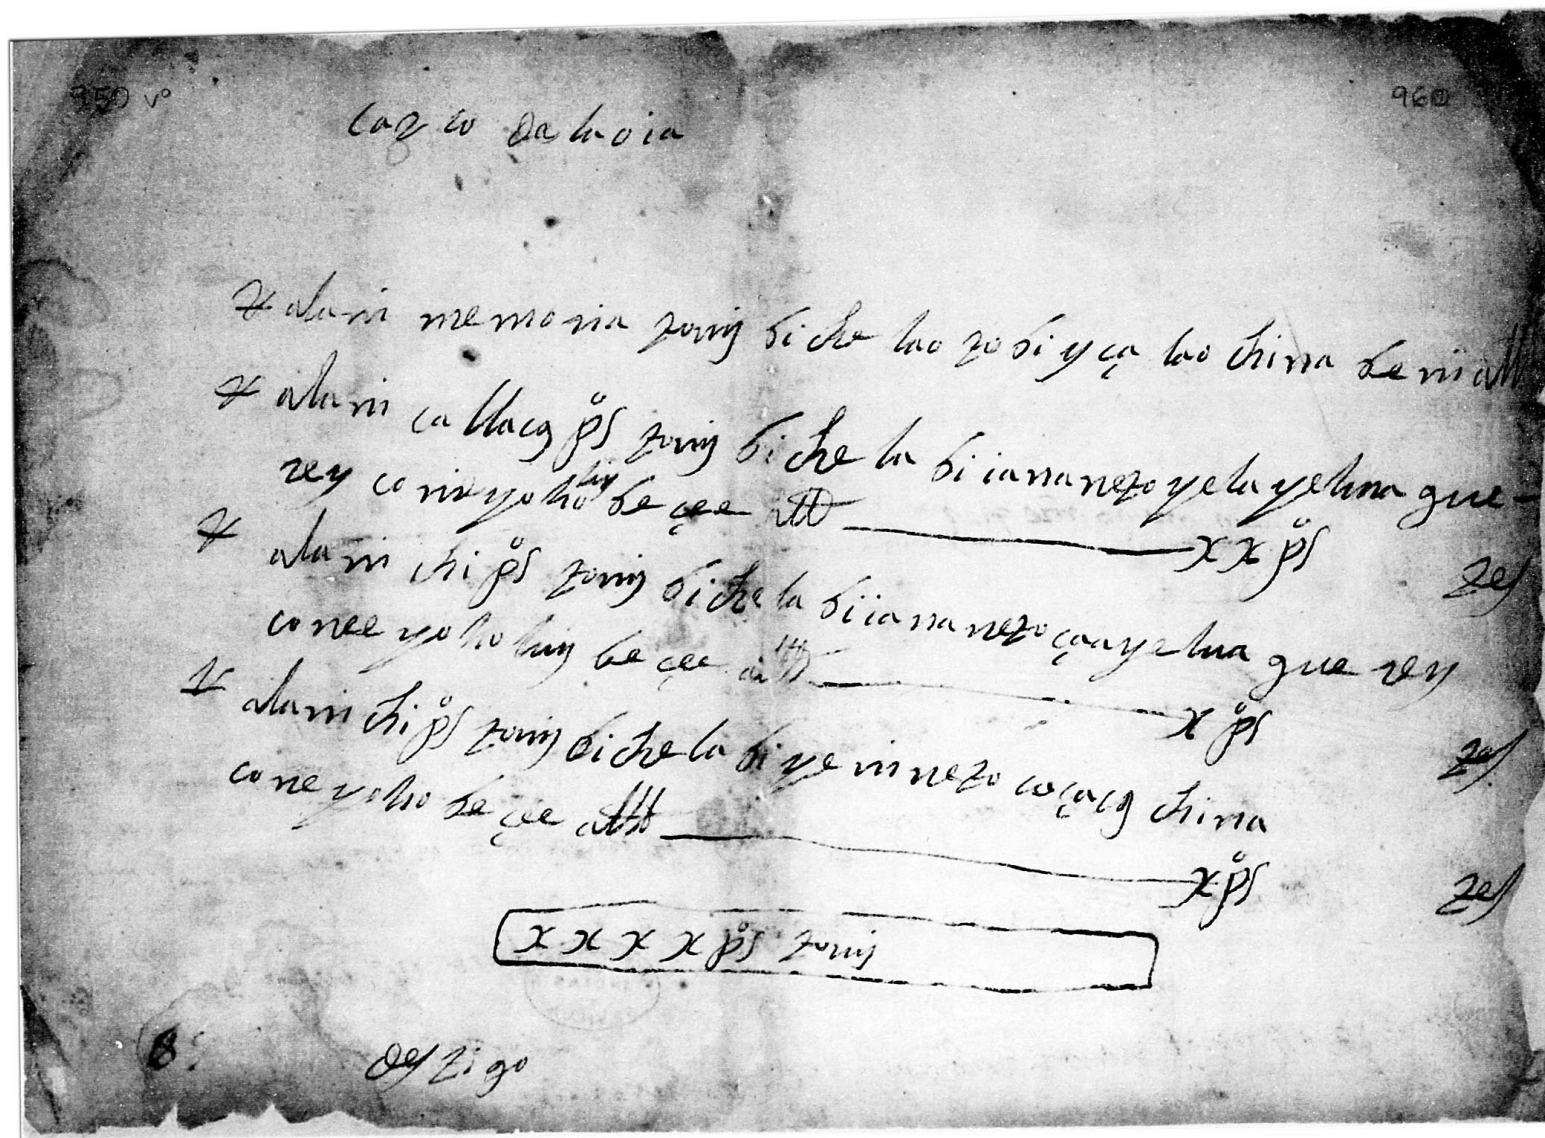 950 vº
960
cazco De la oia
alani memoria tomiȷ biche lao zobi yça lao china beni alld
alani ca llacȷ pºs tomiȷ biche la bi iana nezo yela yelina gue
rey coneyoholuiȷ beçee alld xx pºs
zes
alani chi pºs tomiȷ biche la biiana nezo çaayelua gue rey
conee yoholuiȷ beçee alld x pºs
zes
alani chi pºs tomiȷ biche la bi yeni nezo coçacȷ china
coneyoho beçee alld x pºs
zes
xxxx pºs tomiȷ